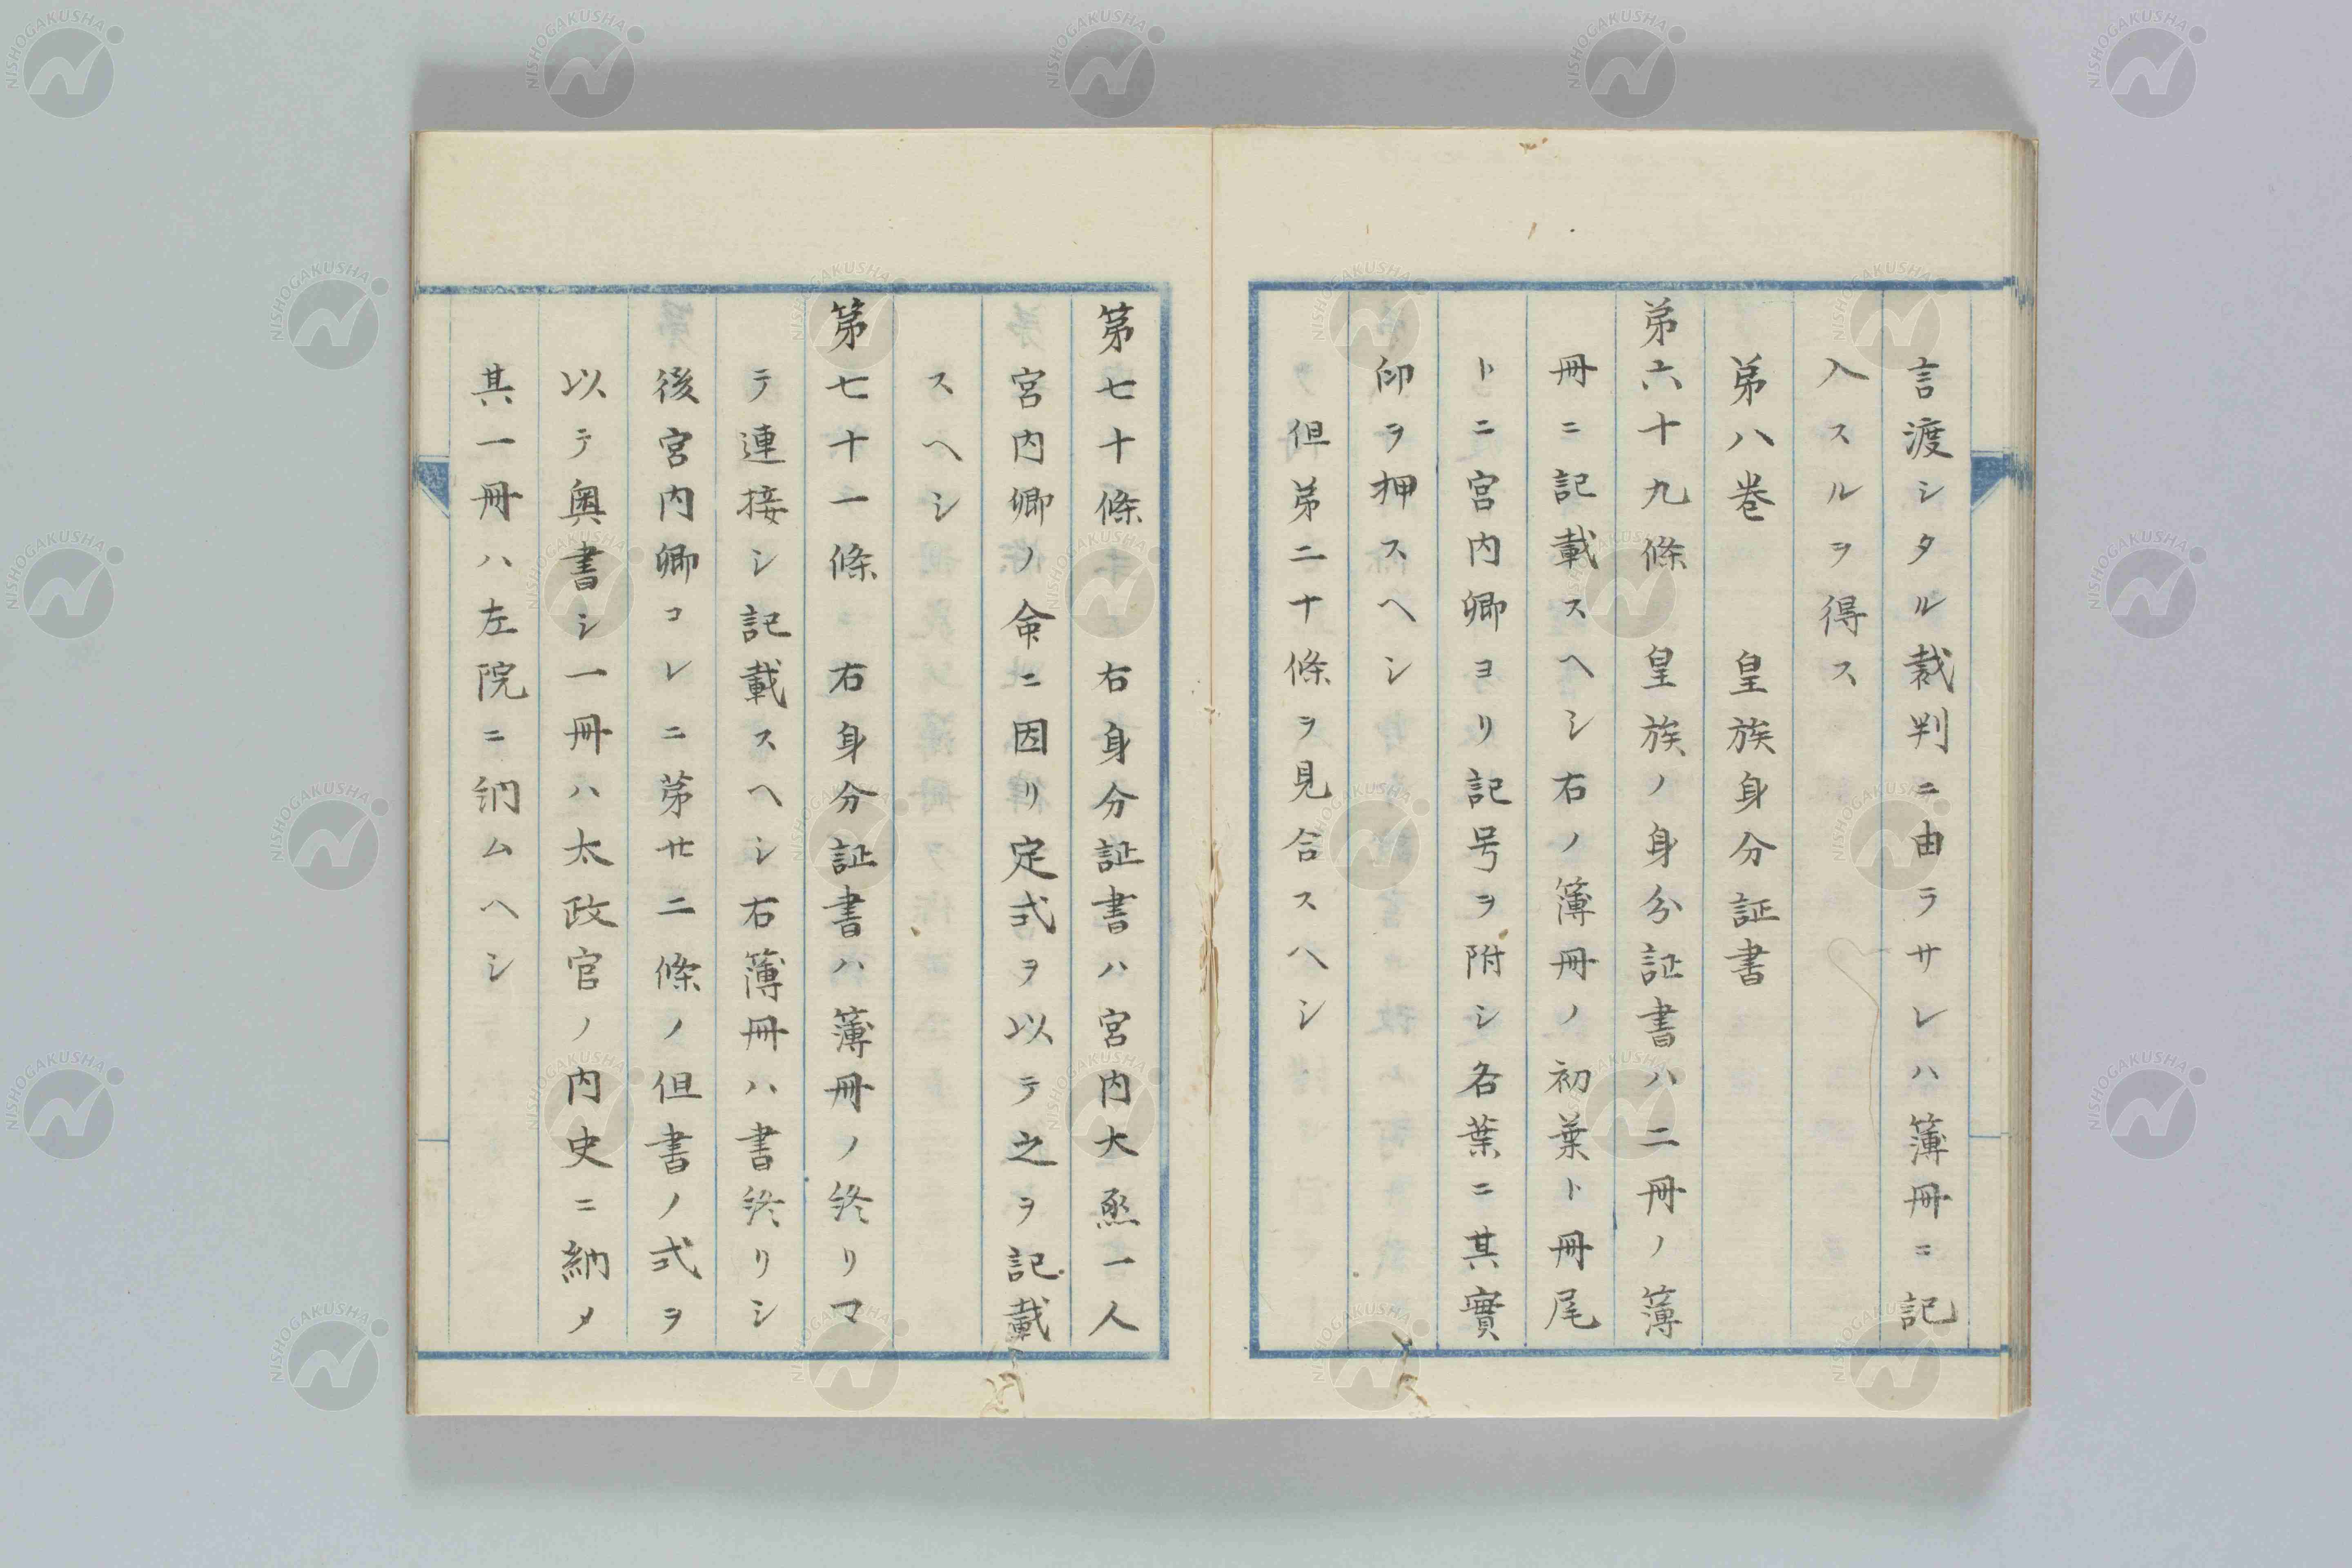 言渡シタル裁判ニ由ラサレハ簿冊ニ記
入スルヲ得ス
第八巻　皇族身分証書
第六十九條　皇族ノ身分証書ハ二冊ノ簿
冊ニ記載スヘシ右ノ簿冊ノ初葉ト冊尾
トニ宮内卿ヨリ記号ヲ附シ各葉ニ其實
印ヲ押スヘシ
但第二十條ヲ見合スヘシ
第七十條　右身分証書ハ宮内大烝一人
宮内卿ノ命ニ因リ定式ヲ以テ之ヲ記載
スヘシ
第七十一條　右身分証書ハ簿冊ノ終リマ
テ連接シ記載スヘシ右簿冊ハ書終リシ
後宮内卿コレニ第廿二條ノ但書ノ式ヲ
以テ奥書シ一冊ハ太政官ノ内史ニ納メ
其一冊ハ左院ニ納ムヘシ
NISHOGAKUSHA